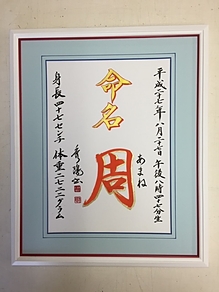 平成二十七年八月二十七日 午後八時四十七分生
命名
あまね
周
身長四十七センチ 体重二七三二グラム